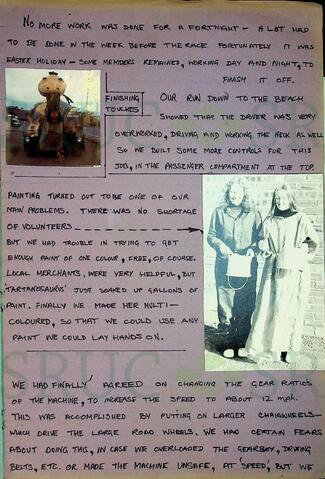 NO MORE WORK WAS DONE FOR A FORTNIGHT - A LOT HAD
TO BE DONE IN THE WEEK BEFORE THE RACE. FORTUNATELY IT WAS
EASTER HOLIDAY - SOME MEMBERS REMAINED, WORKING DAY AND NIGHT, TO
FINISH IT OFF.
FINISHING
TOUCHES
OUR RUN DOWN TO THE BEACH
SHOWED THAT THE DRIVER WAS VERY
OVERWORKED, DRIVING AND WORKING THE NECK AS WELL
SO WE BUILT SOME MORE CONTROLS FOR THIS
JOB, IN THE PASSENGER COMPARTMENT AT THE TOP.
PAINTING TURNED OUT TO BE ONE OF OUR
MAIN PROBLEMS. THERE WAS NO SHORTAGE
OF VOLUNTEERS
BUT WE HAD TROUBLE IN TRYING TO GET
ENOUGH PAINT OF ONE COLOUR, FREE, OF COURSE.
LOCAL MERCHANTS, WERE VERY HELPFUL, BUT
'TARTANOSAURUS' JUST SOAKED UP GALLONS OF
PAINT. FINALLY WE MADE HER MULTI-
COLOURED, SO THAT WE COULD USE ANY
PAINT WE COULD LAY HANDS ON.
WE HAD FINALLY AGREED ON CHANGING THE GEAR RATIOS
OF THE MACHINE, TO INCREASE THE SPEED TO ABOUT 12 MPH.
THIS WAS ACCOMPLISHED BY PUTTING ON LARGER CHAINWHEELS-
WHICH DRIVE THE LARGE ROAD WHEELS. WE HAD CERTAIN FEARS
ABOUT DOING THIS, IN CASE WE OVERLOADED THE GEARBOX, DRIVING
BELTS, ETC. OR MADE THE MACHINE UNSAFE, AT 'SPEED', BUT WE